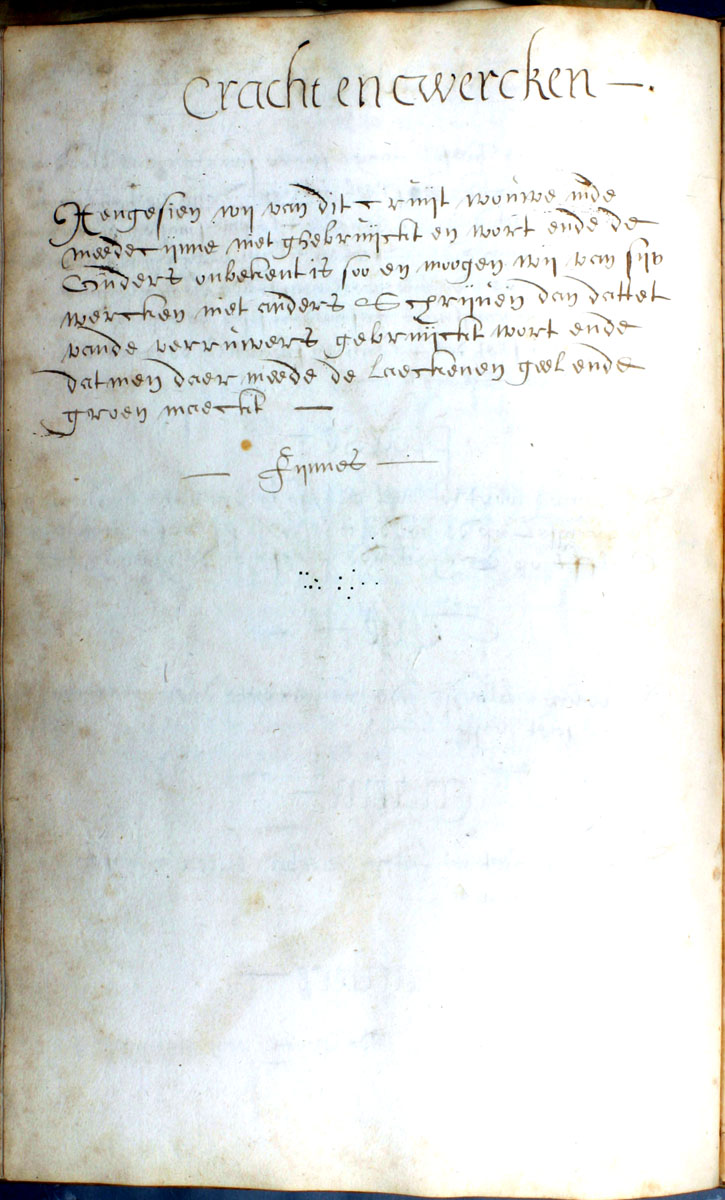 Cracht en twercken —.
Aengesien wij van dit cruijt wouwe inde
meedecijnne niet ghebruijckt en wort ende de
Ouders onbekent is soo en moogen wij van sijn
wercken niet anders Schrijuen dan dattet
vande verruwers gebruijckt wort ende
datmen daer meede de laeckenen geel ende
groen maeckt —
— Fijnnes —